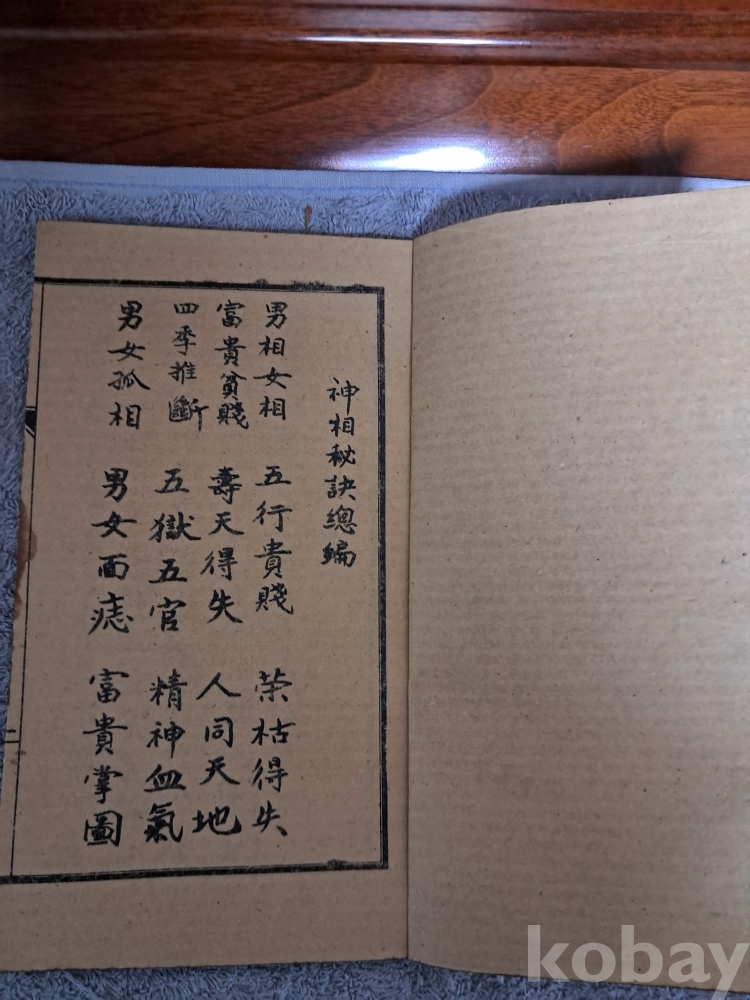 神相秘訣總編
男相女相 五行貴賤 荣枯得失
富貴貧賤 壽天得失 人同天地
四季推斷 五獄五官 精神血氣
男女孤相 男女面痣 富貴掌圖
二
kobay